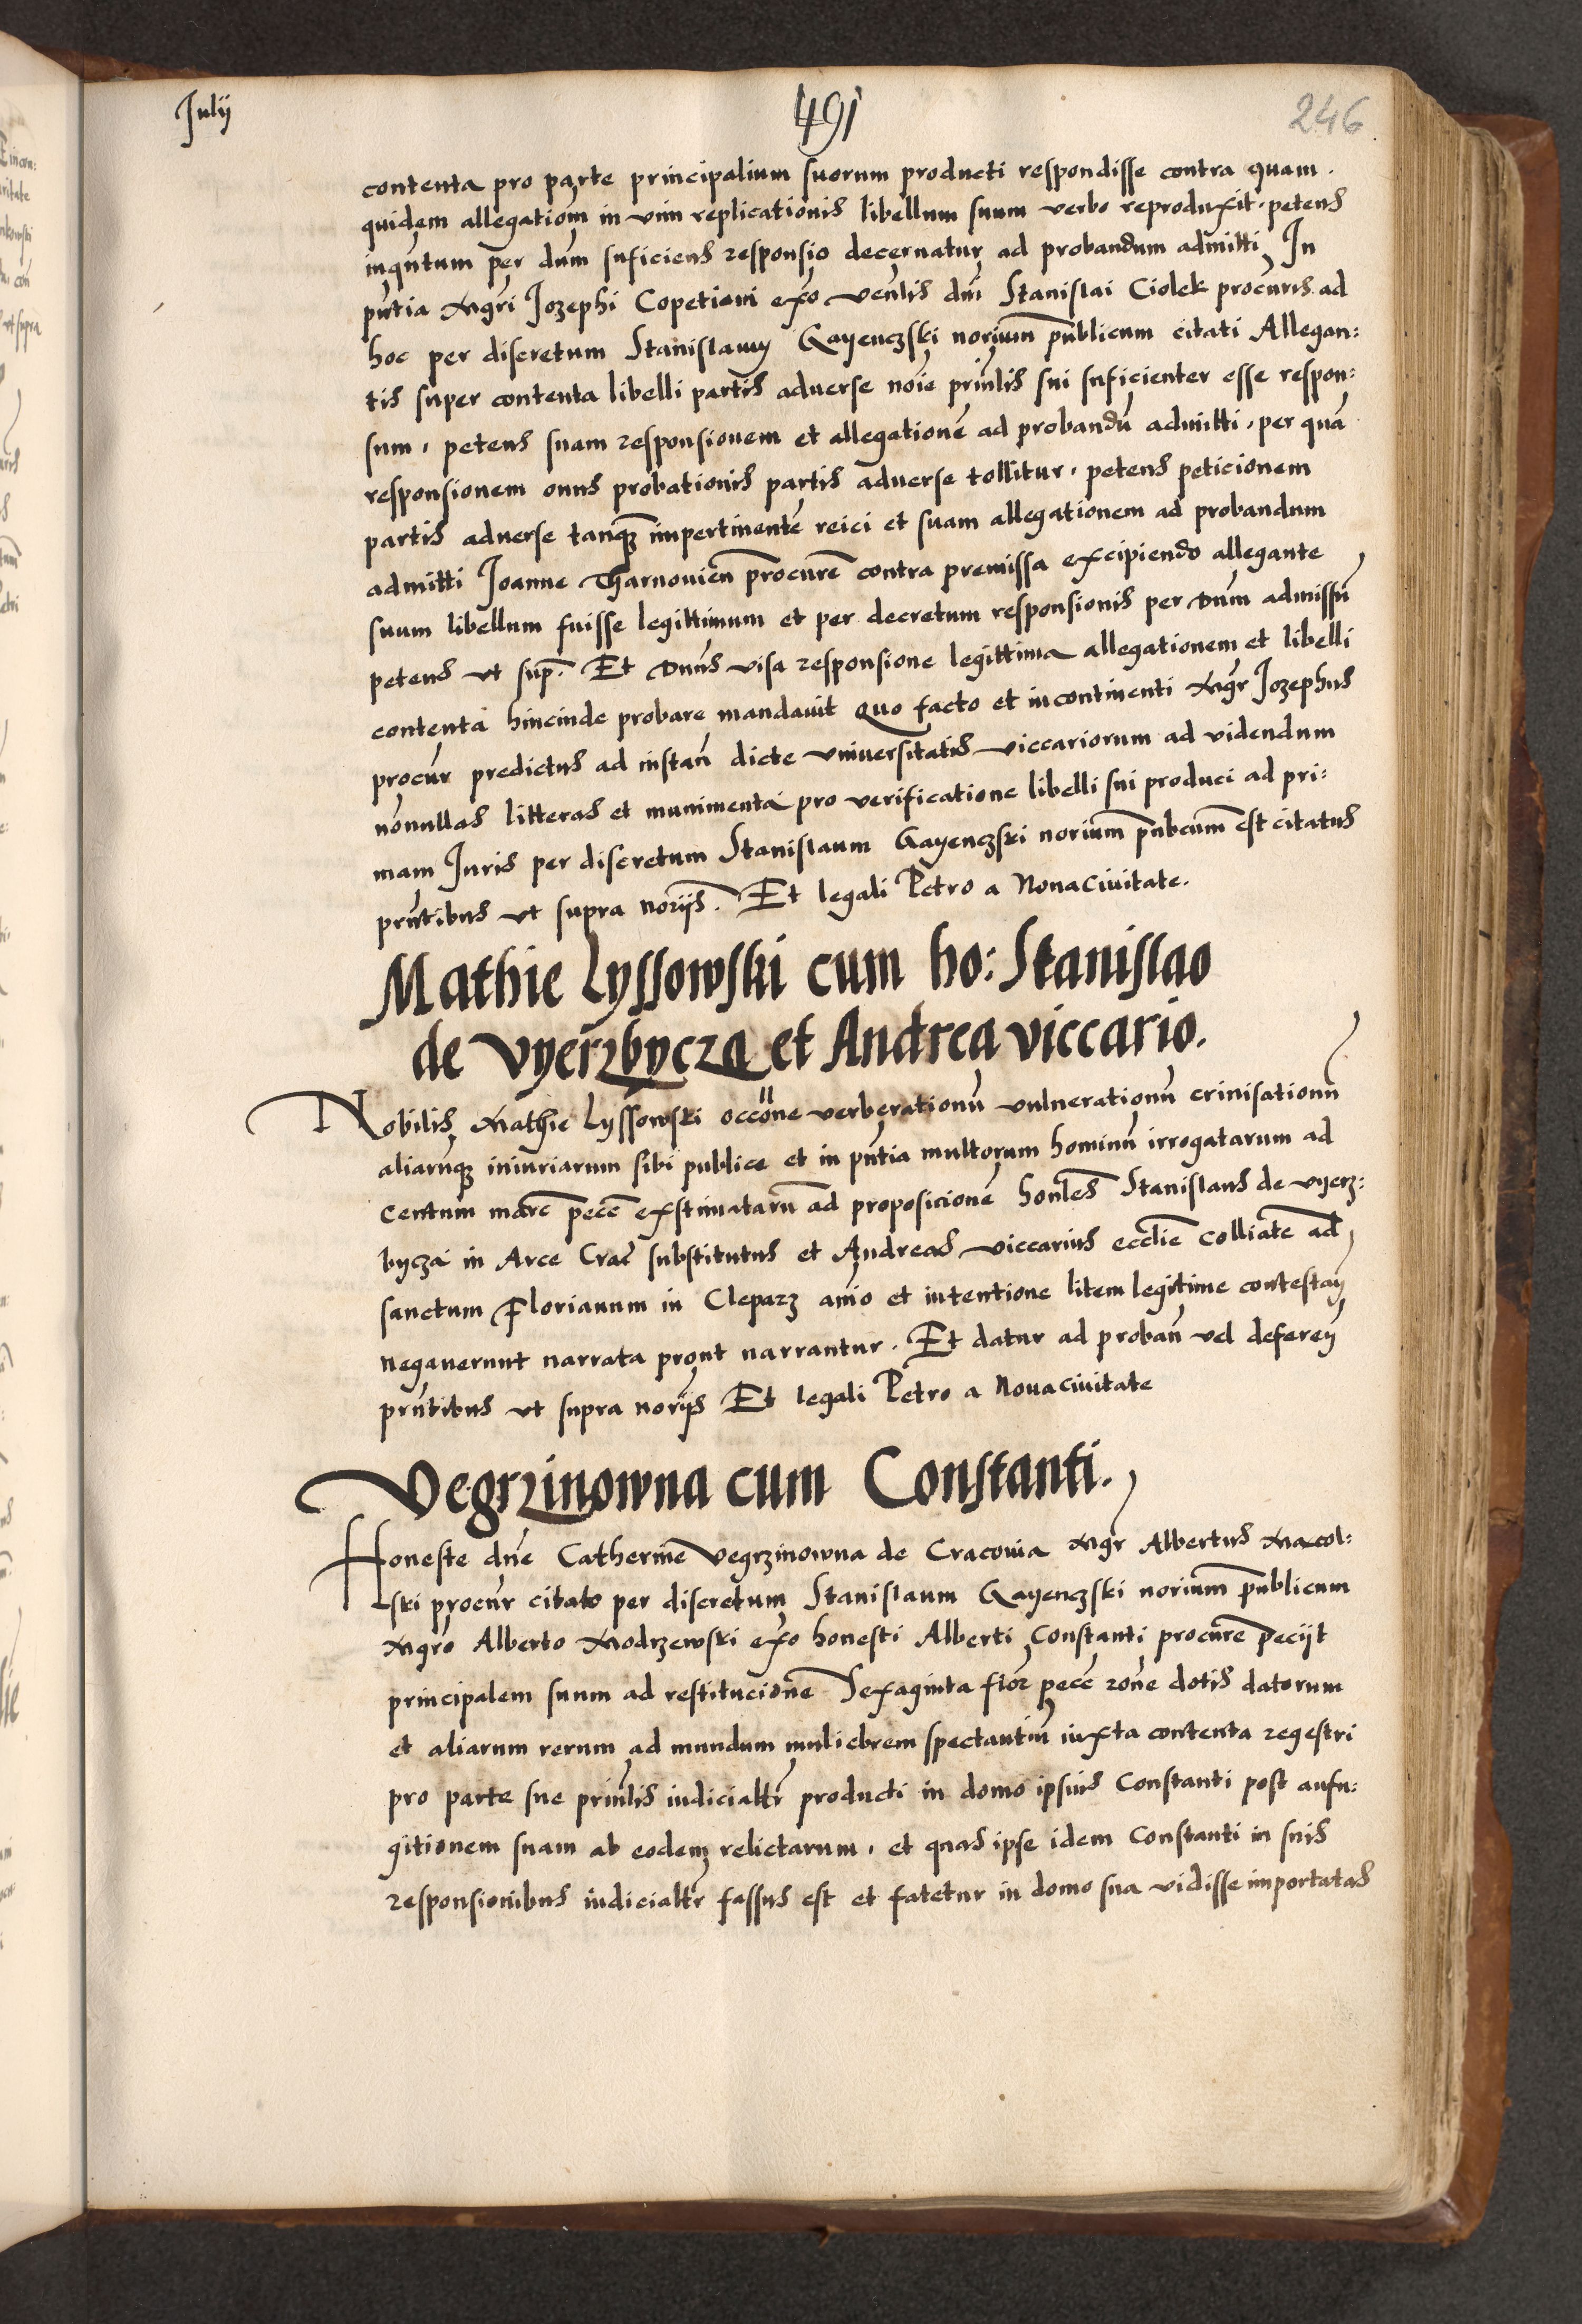 Julii
491
246
contenta pro parte principalium suorum producti respondisse contra quam.
quidem allegationem in vim replicationis libellum suum verbo reproduxit. petens
inqntum per dnm suficiens responsio decernatur ad probandum admitti In
pntia Mgri Jozephi Copetieni exo venlis dni Stanislai Ciolek procuris ad
hoc per discretum Stanislaum Gayenczski norium publicum citati Allegan:
tis super contenta libelli partis aduerse noie prinlis sui suficienter esse respon:
sum, petens suam responsionem et allegatione ad probandu admitti, per qua
responsionem onus probationis partis aduerse tollitur, petens peticionem
partis aduerse tanq impertinente reici et suam allegationem ad probandum
admitti Joanne Tharnouien procure contra premissa excipiendo allegante
suum libellum fuisse legittimum et per decretum responsionis per Dnm admissu
petens vt sup. Et Dnus visa responsione legittima allegationem et libelli
contenta hincinde probare mandauit Quo facto et incontinenti Mgr Jozephus
procur predictus ad instan dicte vniuersitatis viccariorum ad videndum
nonullas litteras et munimenta pro verificatione libelli sui produci ad pri:
mam Juris per discretum Stanislaum Gayenczski norium pubcum est citatus
prntibus vt supra noriis. Et legali Petro a Nonaciuitate.
Mathie Lyssowski cum ho: Stanislao
de Vyerzbycza et Andrea viccario.
Nobilis Mathie Lyssowski occone verberationu vulnerationu crinisationu
aliarumq iniuriarum sibi publice et in pntia multorum hominu irrogatarum ad
Centum marc pece exstimataru ad proposicione honles Stanislaus de vyerz:
bycza in Arce Crac substitutus et Andreas viccarius ecclie colliate ad
sanctum Florianum in Cleparz anio et intentione litem legitime contestan
negauerunt narrata prout narrantur. Et datur ad proban vel deferen
prntibus vt supra noriis Et legali Petro a Nouaciuitate
Vegrzinowna cum Constanti.
Honeste dne Catherine Vegrzinowna de Cracouia Mgr Albertus Macol:
ski procur citato per discretum Stanislaum Gayenczski norium publicum
Mgro Alberto Modrzewski exo honesti Alberti Constanti procure peciit
principalem suum ad restitucione Sexaginta flor pece rone dotis datorum
et aliarum rerum ad mundum muliebrem spectantiu iuxta contenta regestri
pro parte sue prinlis iudicialtr producti in domo ipsius Constanti post aufu:
gitionem suam ab eodem relictarum, et quas ipse idem Constanti in suis
responsionibus iudicialtr fassus est et fatetur in domo sua vidisse importatas